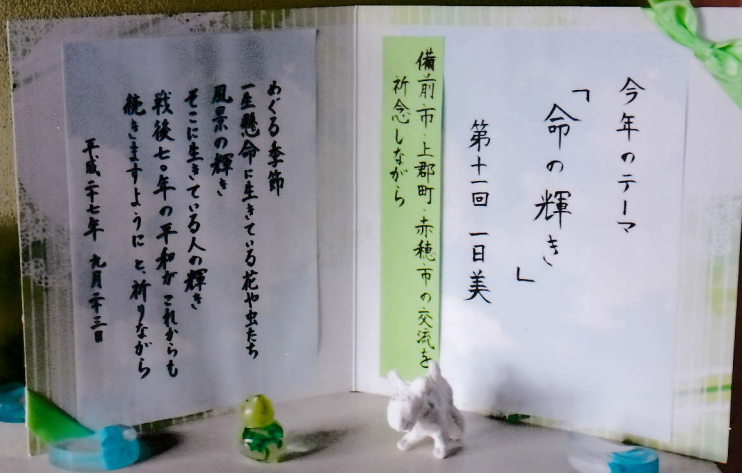 今年のテーマ
「命の輝き」
第十一回 一日美
備前市・上郡町・赤穂市の交流を
祈念しながら
めぐる季節
一生懸命に生きている花や虫たち
風景の輝き
そこに生きている人の輝き
戦後七〇年の平和がこれからも
続きますようにと、祈りながら
平成二十七年 九月二十三日